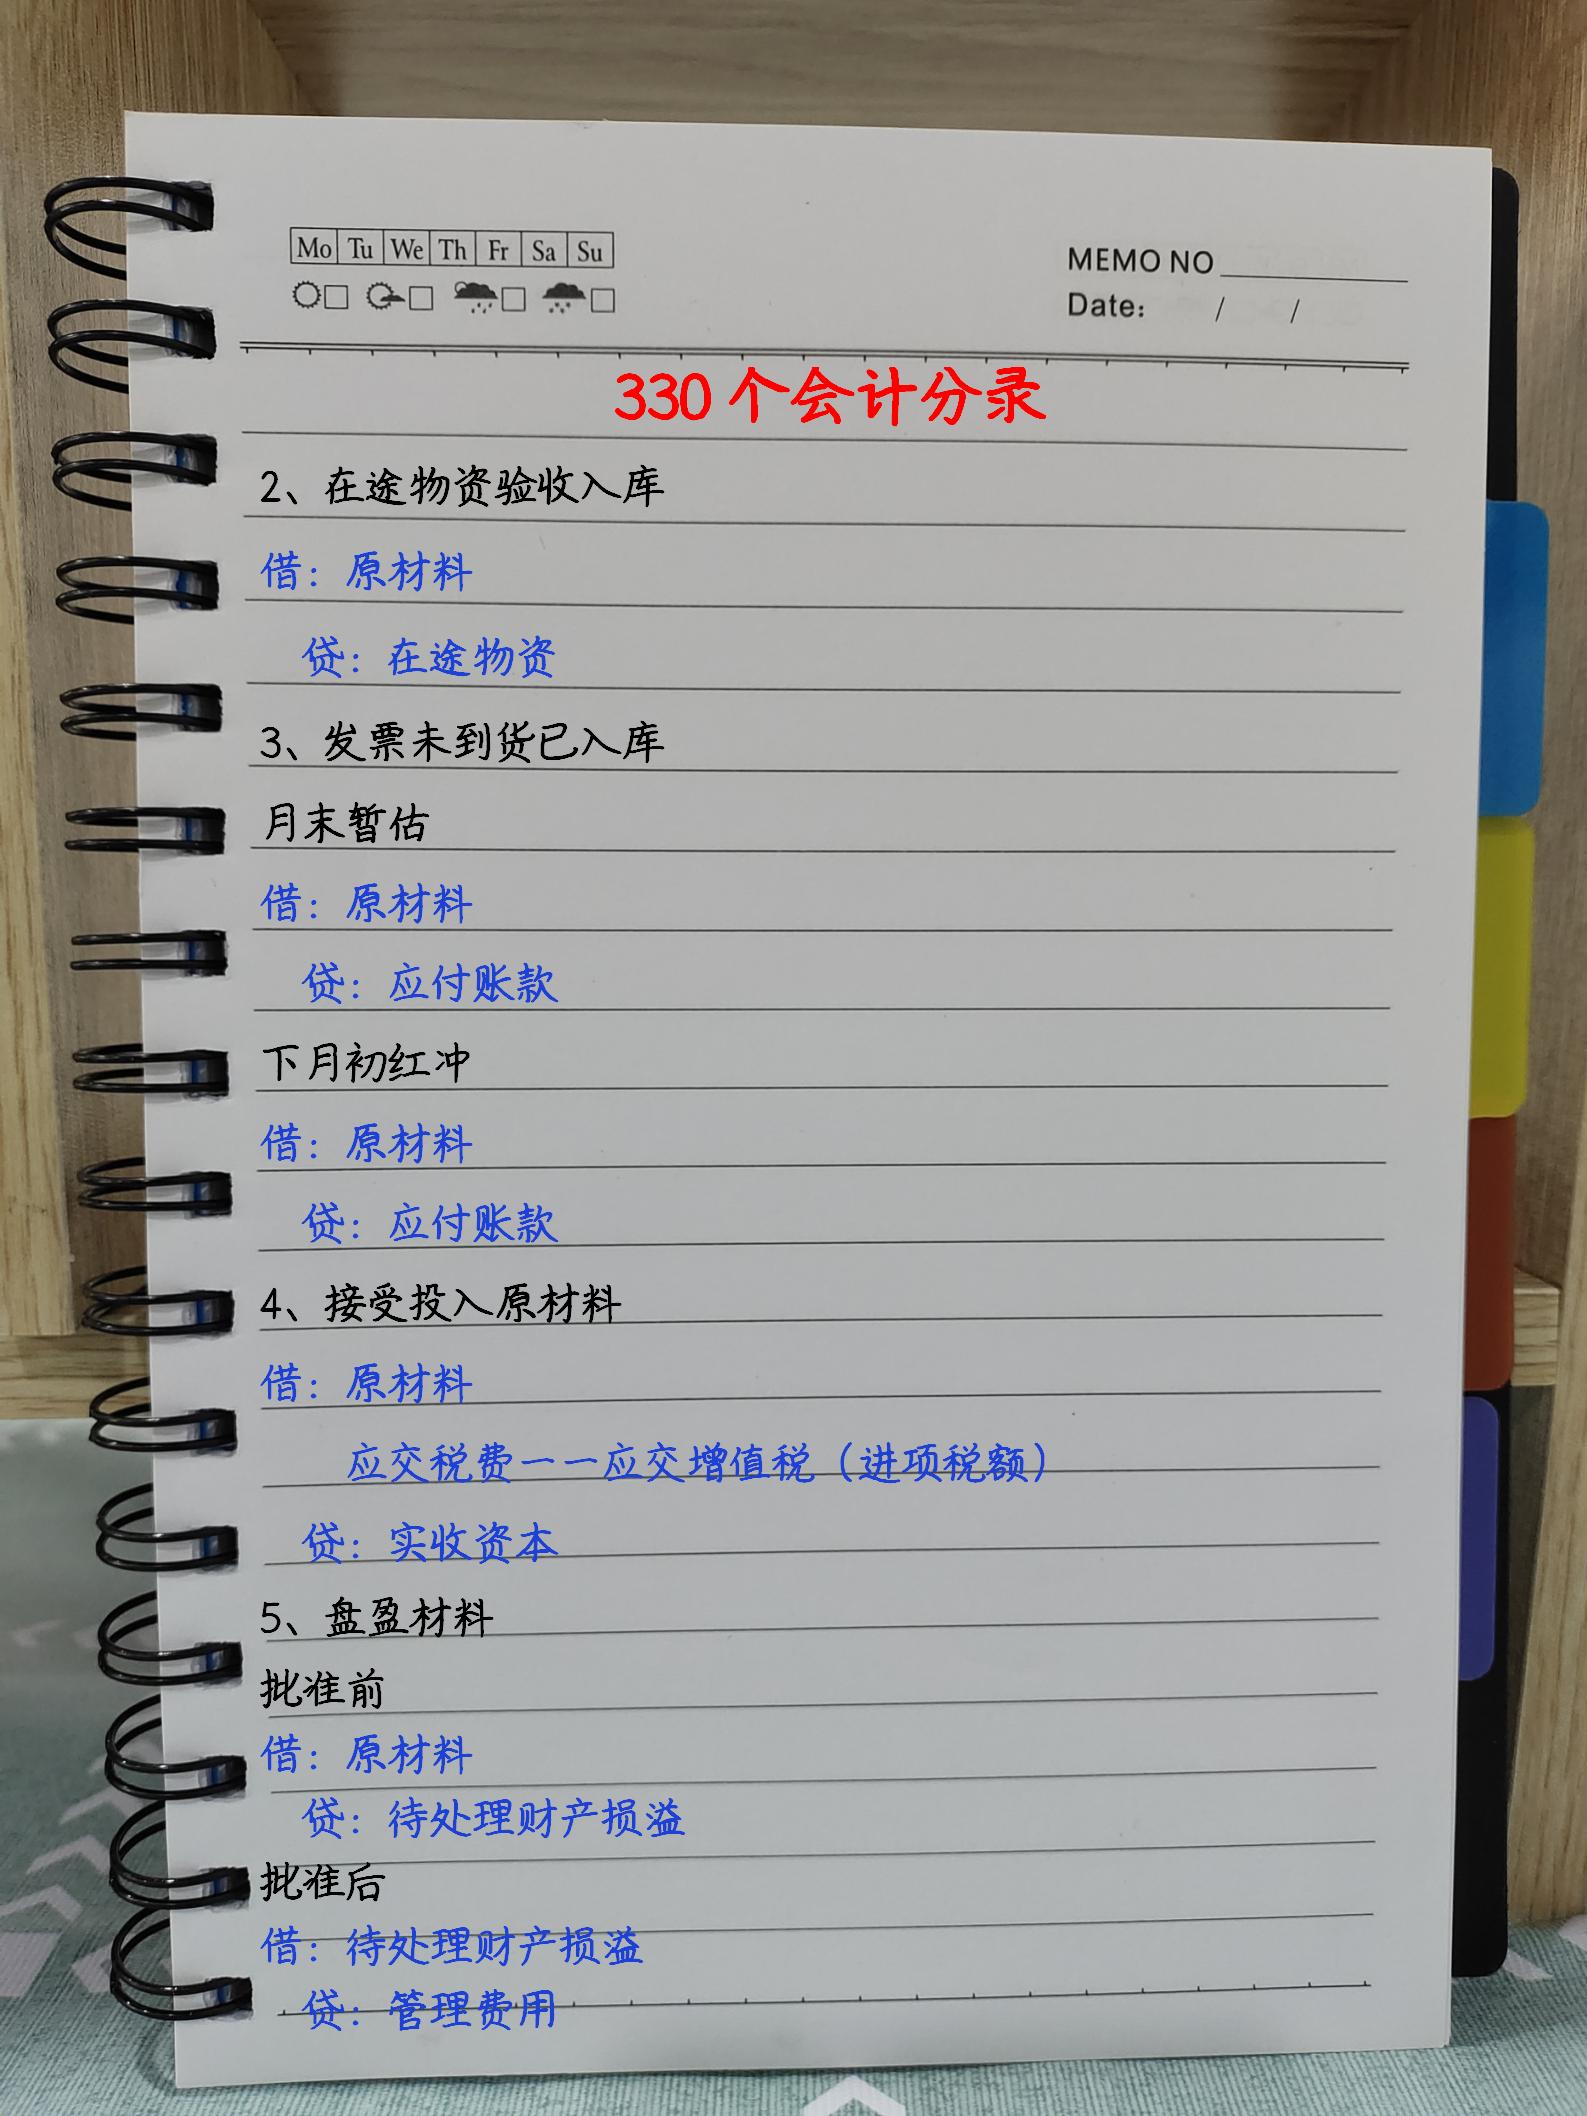 Mo Tu We Th Fr Sa Su
MEMO NO
Date: / /
330个会计分录
2、在途物资验收入库
借：原材料
贷：在途物资
3、发票未到货已入库
月末暂估
借：原材料
贷：应付账款
下月初红冲
借：原材料
贷：应付账款
4、接受投入原材料
借：原材料
应交税费一一应交增值税（进项税额）
贷：实收资本
5、盘盈材料
批准前
借：原材料
贷：待处理财产损溢
批准后
借：待处理财产损溢
贷：管理费用